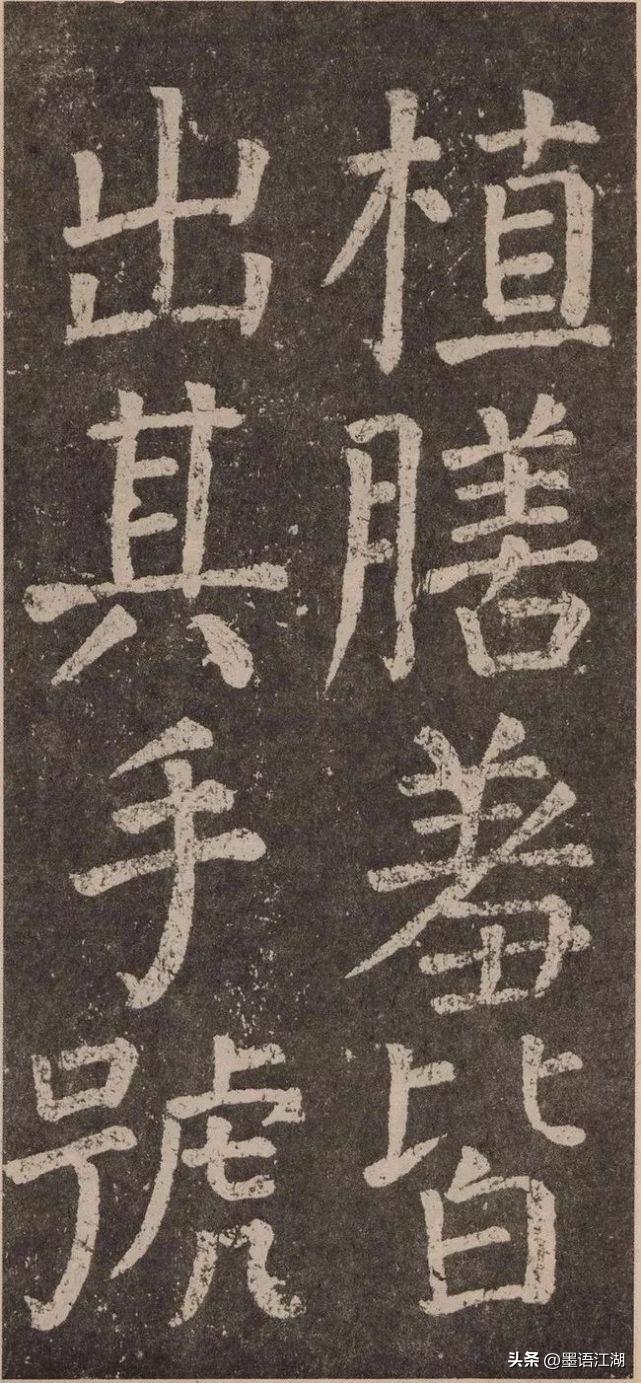 植膳羞皆
出其手號
头条 @墨语江湖